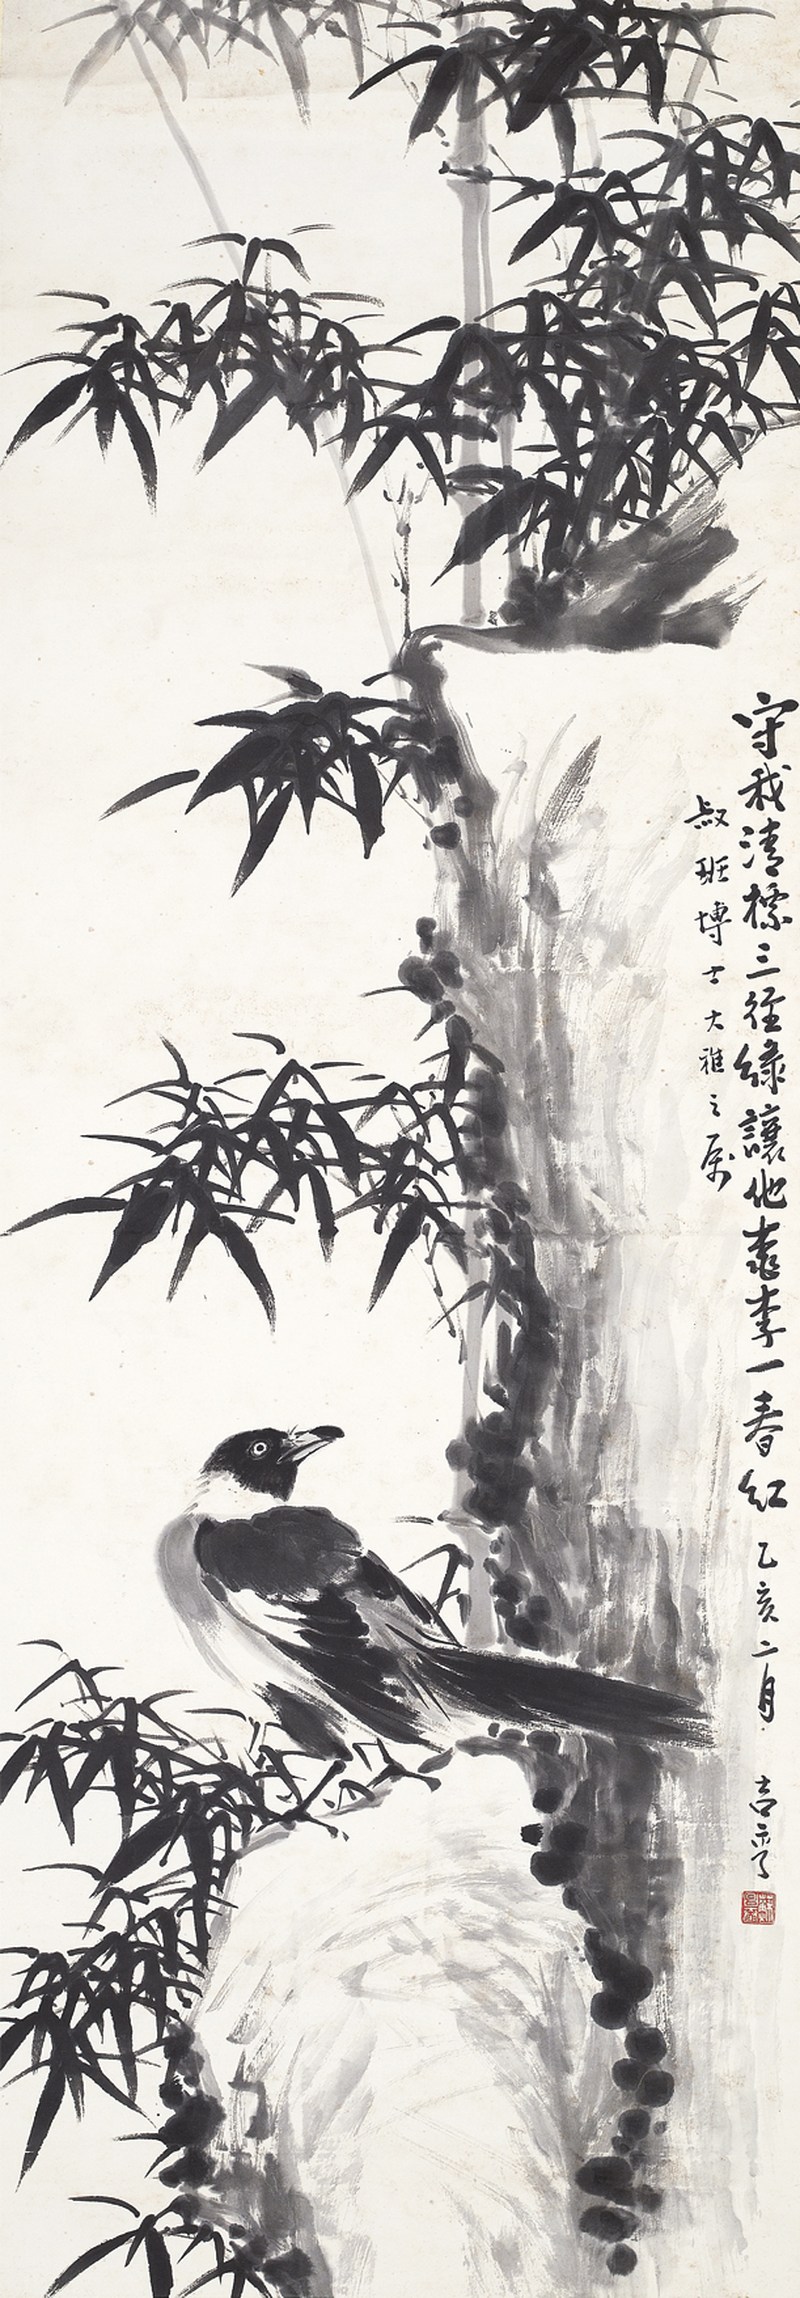 守我清標三徑綠讓他桃李一春紅 乙亥二月
叔班博士大雅之屬